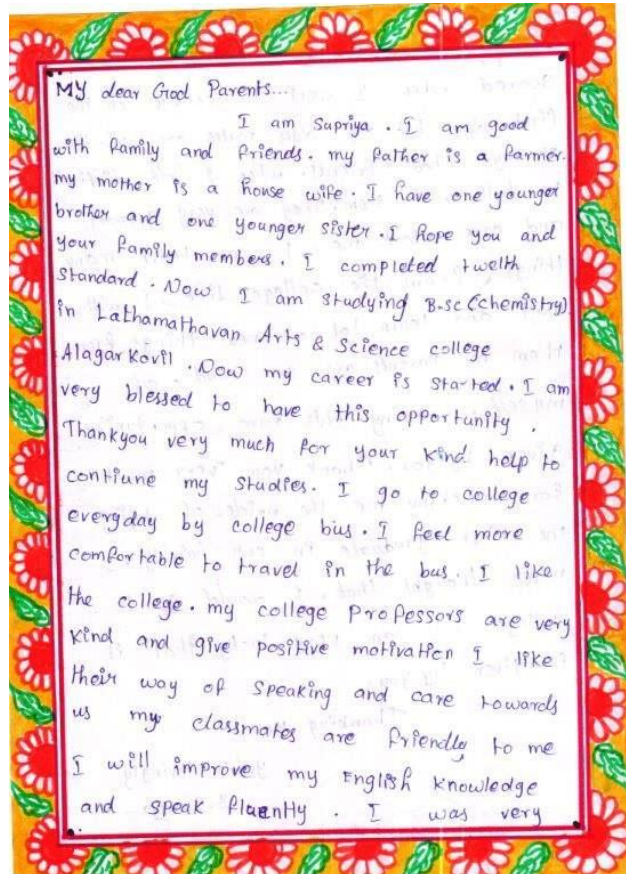 MY dear God Parents...
I am Supriya. I am good
with family and friends. my father is a farmer.
my mother is a house wife. I have one younger
brother and one younger sister. I hope you and
your family members. I completed twelth
Standard. Now I am studying B.sc (chemistry)
in Lathamathavan Arts & Science college
Alagar Kovil. Now my career is started. I am
very blessed to have this opportunity.
Thankyou very much for your kind help to
contiune my studies. I go to college
everyday by college bus. I feel more
comfortable to travel in the bus. I like
the college. my college professors are very
kind and give positive motivation I like
their way of speaking and care towards
us my classmates are friendly to me
I will improve my English knowledge
and speak fluently. I was very